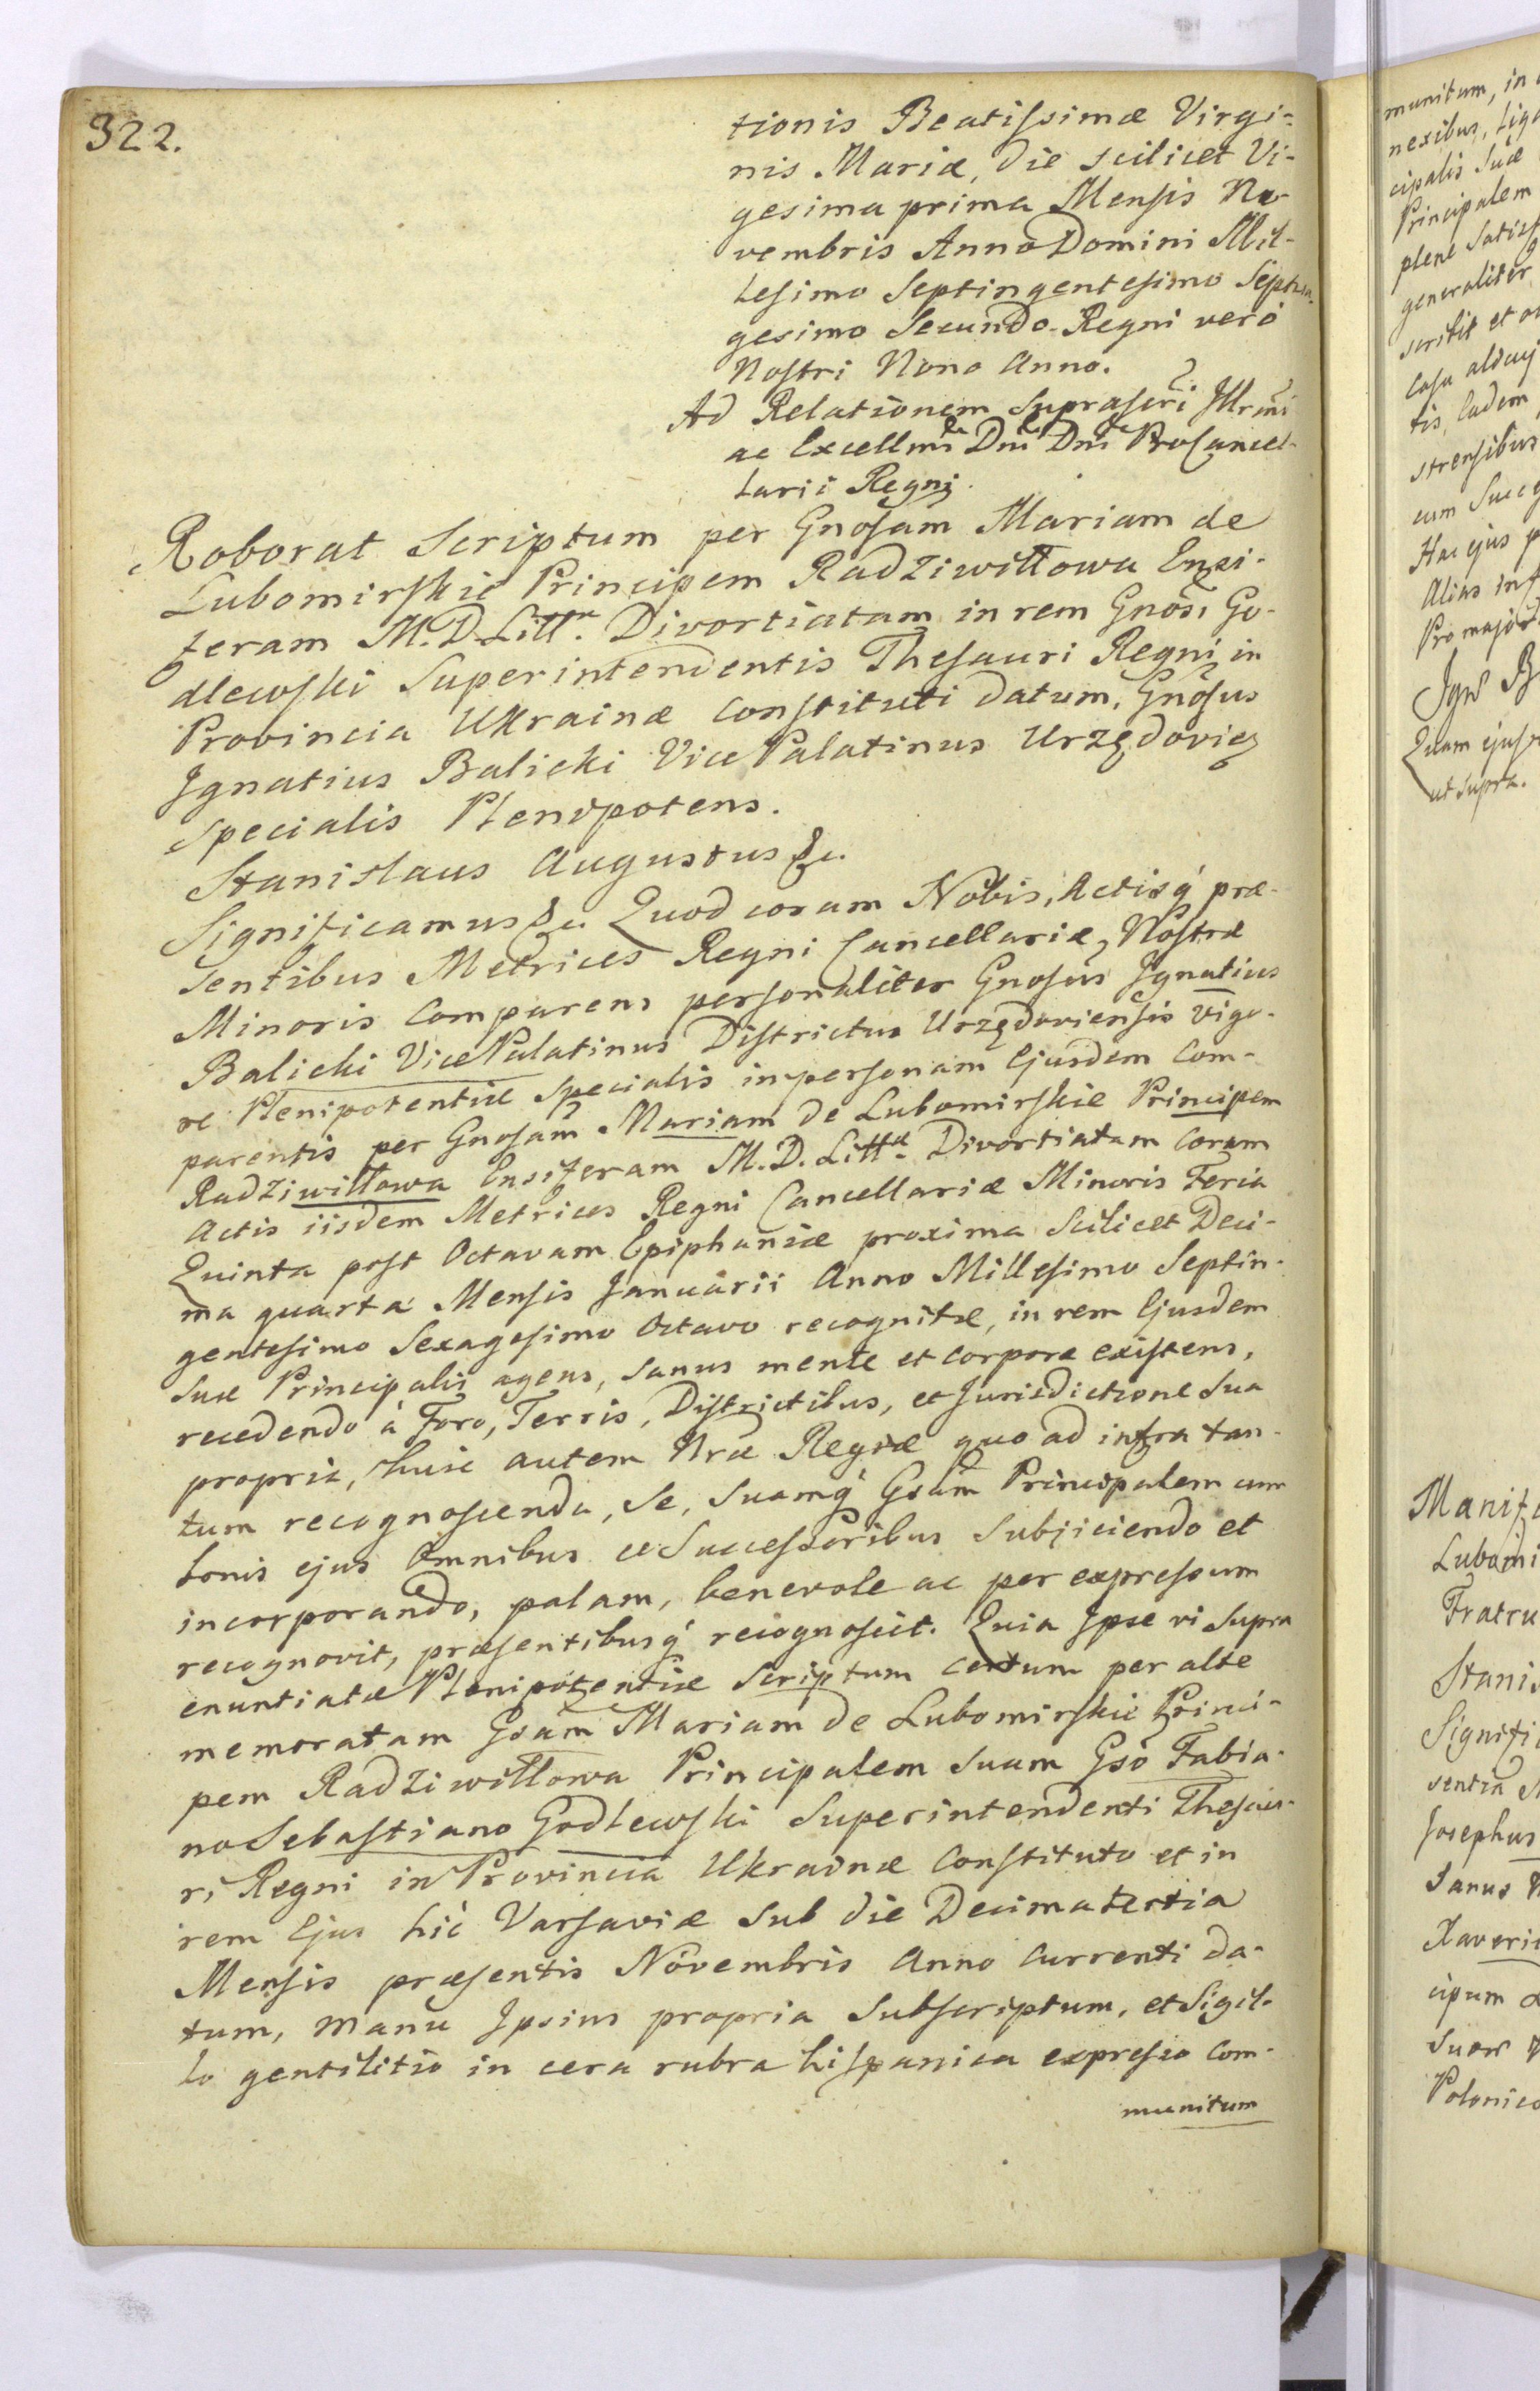 322.
tionis Beatissimæ Virgi-
nis Mariæ, die scilicet Vi-
gesima prima Mensis No-
vembris Anno Domini Mil-
lesimo Septingentesimo Septua-
gesimo Secundo Regni verò
Nostri Nono Anno.
Ad Relationem Suprascri Illrmi
ac Excellmi Dni Dni ProCancel-
larii Regni.
Roborat Scriptum per Gnosam Mariam de
Lubomirskie Principem Radziwiłłowa Ensi-
feram M. D. Litt. Divortiatam in rem Gnosi Go-
dlewski Superintendentis Thesauri Regni in
Provincia Ukrainæ constituti datum, Gnosus
Ignatius Balicki Vice Palatinus Urzędovien
specialis Plenipotens.
Stanislaus Augustus &c.
Significamus &c. Quod coram Nobis, Actisq́ præ-
sentibus Metrices Regni Cancellariæ, Nostræ
Minoris Comparens personaliter Gnosus Ignatius
Balicki Vice Palatinus Districtus Urzędoviensis vigo-
re Plenipotentiæ Specialis in personam Ejusdem Com-
parentis per Gnosam Mariam de Lubomirskie Principem
Radziwiłłowa Ensiferam M. D. Litt. Divortiatam coram
Actis iisdem Metrices Regni Cancellariæ Minoris Feria
Quinta post Octavam Epiphaniæ proxima Scilicet Deci-
ma quarta Mensis Januarii Anno Millesimo Septin-
gentesimo Sexagesimo Octavo recognitæ, in rem Ejusdem
Suæ Principalis agens, sanus mente et corpore existens,
recedendo à Foro, Terris, Districtibus, et Jurisdictione Sua
propria, huic autem Nræ Regiæ quo ad infra tan-
tum recognoscenda, Se, Suamq́ Gsam Principalem cum
bonis ejus Omnibus ac Successoribus Subjiciendo et
incorporando, palam, benevole ac per expressum
recognovit, præsentibusq́ recognoscit. Quia Ipse vi Supra
enuntiatæ Plenipotentiæ Scriptum certum per alte
memoratam Gsam Mariam de Lubomirskie Princi-
pem Radziwiłłowa Principalem Suam Gso Fabia-
no Sebastiano Godlewski Superintendenti Thesau-
ri Regni in Provincia Ukrainæ Constituto et in
rem Ejus hìc Varsaviæ Sub die Decima tertia
Mensis præsentis Novembris Anno Currenti da-
tum, manu Ipsius propria Subscriptum, et Sigil-
lo gentilitio in cera rubra hispanica expresso Com-
munitum
munitum, in
nexibus,
cipalis Suæ
Principalem
plene
generaliter
et
Casu
tis, Eadem
strensibus
cum
Hac ejus
Alias
Pro
Quam
ut supra.
Lubomi
Fratru
Stanis
Signifi
sentia
Josephus
Sanus
Xaveri
cipum
Suor
Polonico